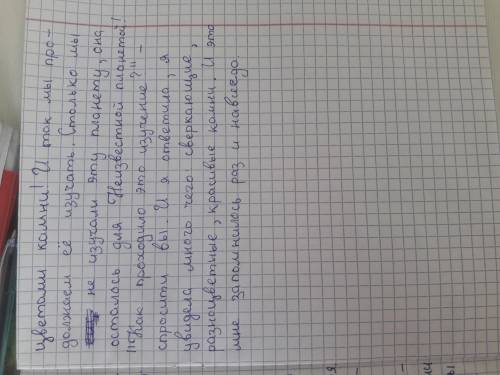 цветами камни! И так мы про-
должаем её изучать. Столько мы
не изучали эту планету, она
осталась для Неизвестной планетой!
"Как проходило это изучение?" -
спросити вы. И я ответила, я
увидела много чего сверкающие,
разноцветные, красивые камни. И это
мне запомнилось раз и навсегда.